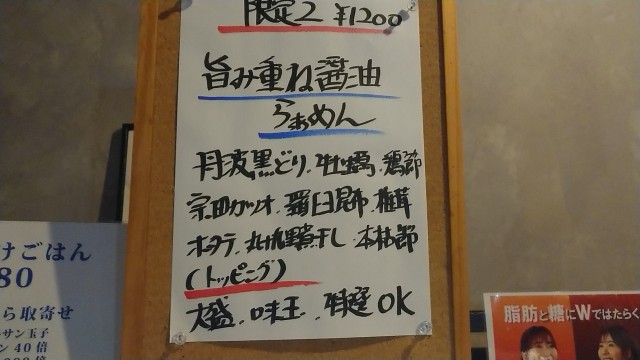 限定2 ¥1200
旨み重ね醤油
らぁめん
丹波黒どり、牡蠣、鶏節
宗田ガツオ、羅臼昆布、椎茸
ホタテ、丸干し、本枯節
(トッピング)
大盛、味玉、特選OK
けごはん
80
ら取寄せ
サン玉子
ン 40 倍
倍
脂肪と糖にWではたらく